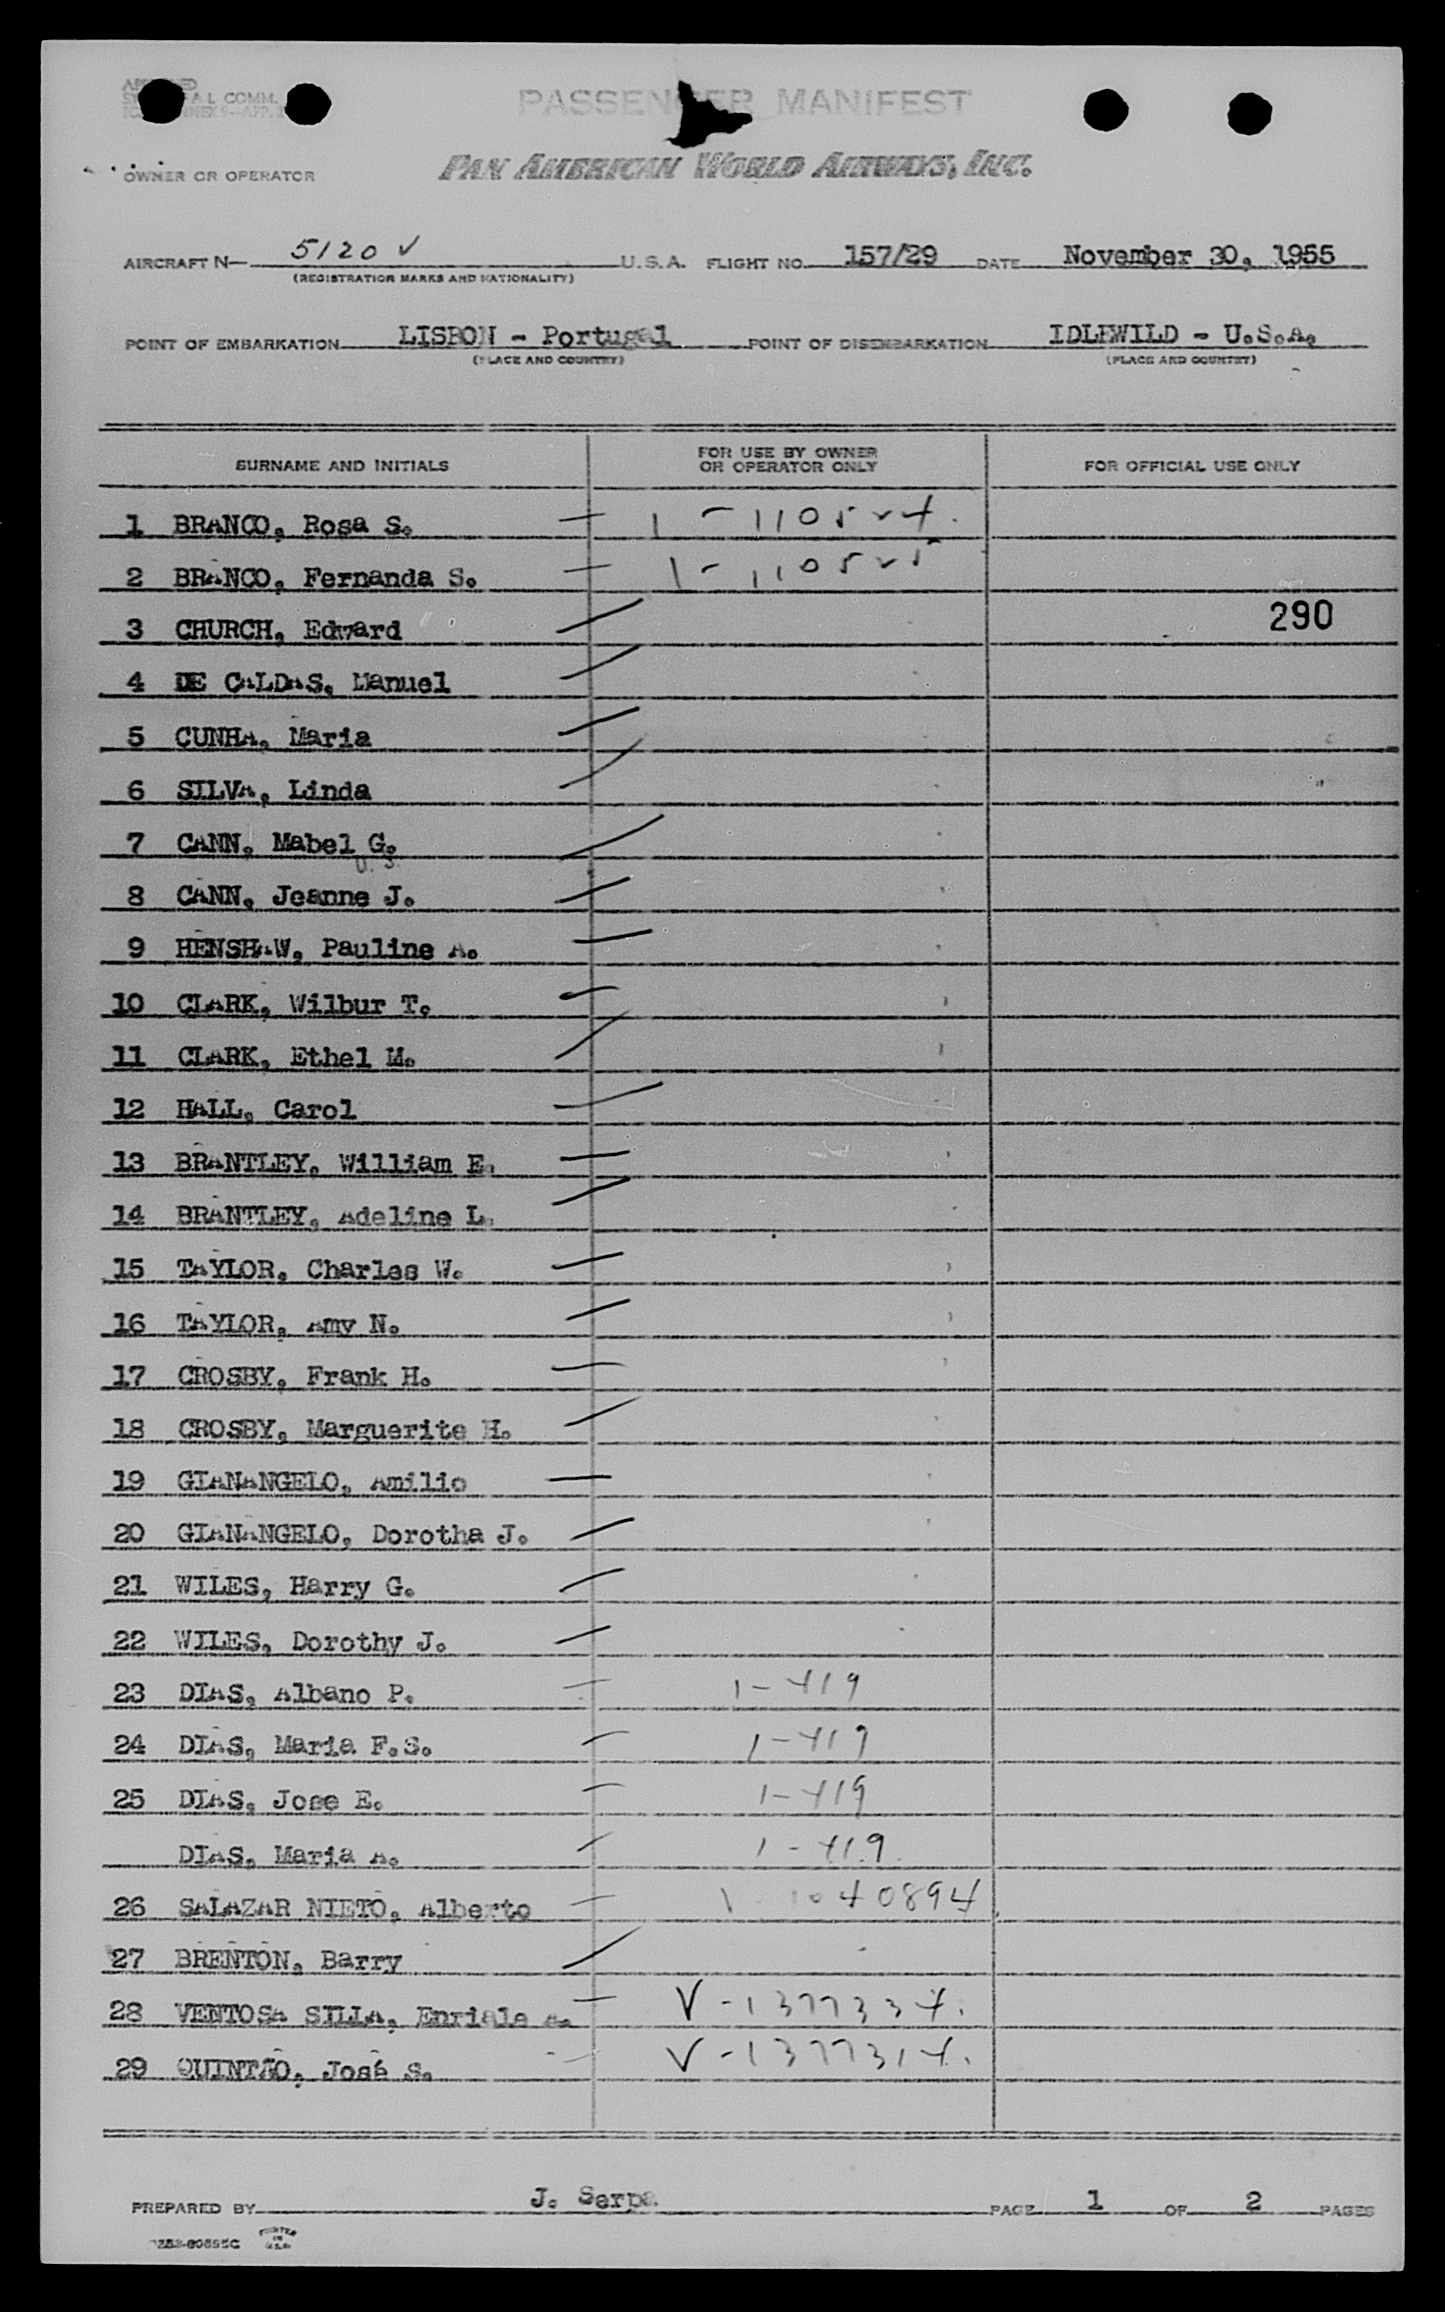 PASSENGER MANIFEST
OWNER OR OPERATOR PAN AMERICAN WORLD AIRWAYS, INC.
AIRCRAFT N— 5120 V U.S.A. FLIGHT NO. 157/29 DATE November 30, 1955
(REGISTRATION MARKS AND NATIONALITY)
POINT OF EMBARKATION LISBON - Portugal POINT OF DISEMBARKATION IDLEWILD - U.S.A.
(PLACE AND COUNTRY) (PLACE AND COUNTRY)
SURNAME AND INITIALS FOR USE BY OWNER OR OPERATOR ONLY FOR OFFICIAL USE ONLY
1 BRANCO, Rosa S. 1-110524.
2 BRANCO, Fernanda S. 1-110525
3 CHURCH, Edward 290
4 DE CALDAS, Manuel
5 CUNHA, Maria
6 SILVA, Linda
7 CANN, Mabel G.
U.S.
8 CANN, Jeanne J.
9 HENSHAW, Pauline A.
10 CLARK, Wilbur T.
11 CLARK, Ethel M.
12 HALL, Carol
13 BRANTLEY, William E.
14 BRANTLEY, Adeline L.
15 TAYLOR, Charles W.
16 TAYLOR, Amy N.
17 CROSBY, Frank H.
18 CROSBY, Marguerite H.
19 GIANANGELO, Amilio
20 GIANANGELO, Dorotha J.
21 WILES, Harry G.
22 WILES, Dorothy J.
23 DIAS, Albano P. 1-419
24 DIAS, Maria F.S. 1-419
25 DIAS, Jose E. 1-419
DIAS, Maria A. 1-419
26 SALAZAR NIETO, Alberto
27 BRENTON, Barry
28 VENTOSA SILLA, V-1377334.
29 QUINTÃO, José S. V-1377314.
PREPARED BY J. Serpa PAGE 1 OF 2 PAGES
PRINTED IN U.S.A.